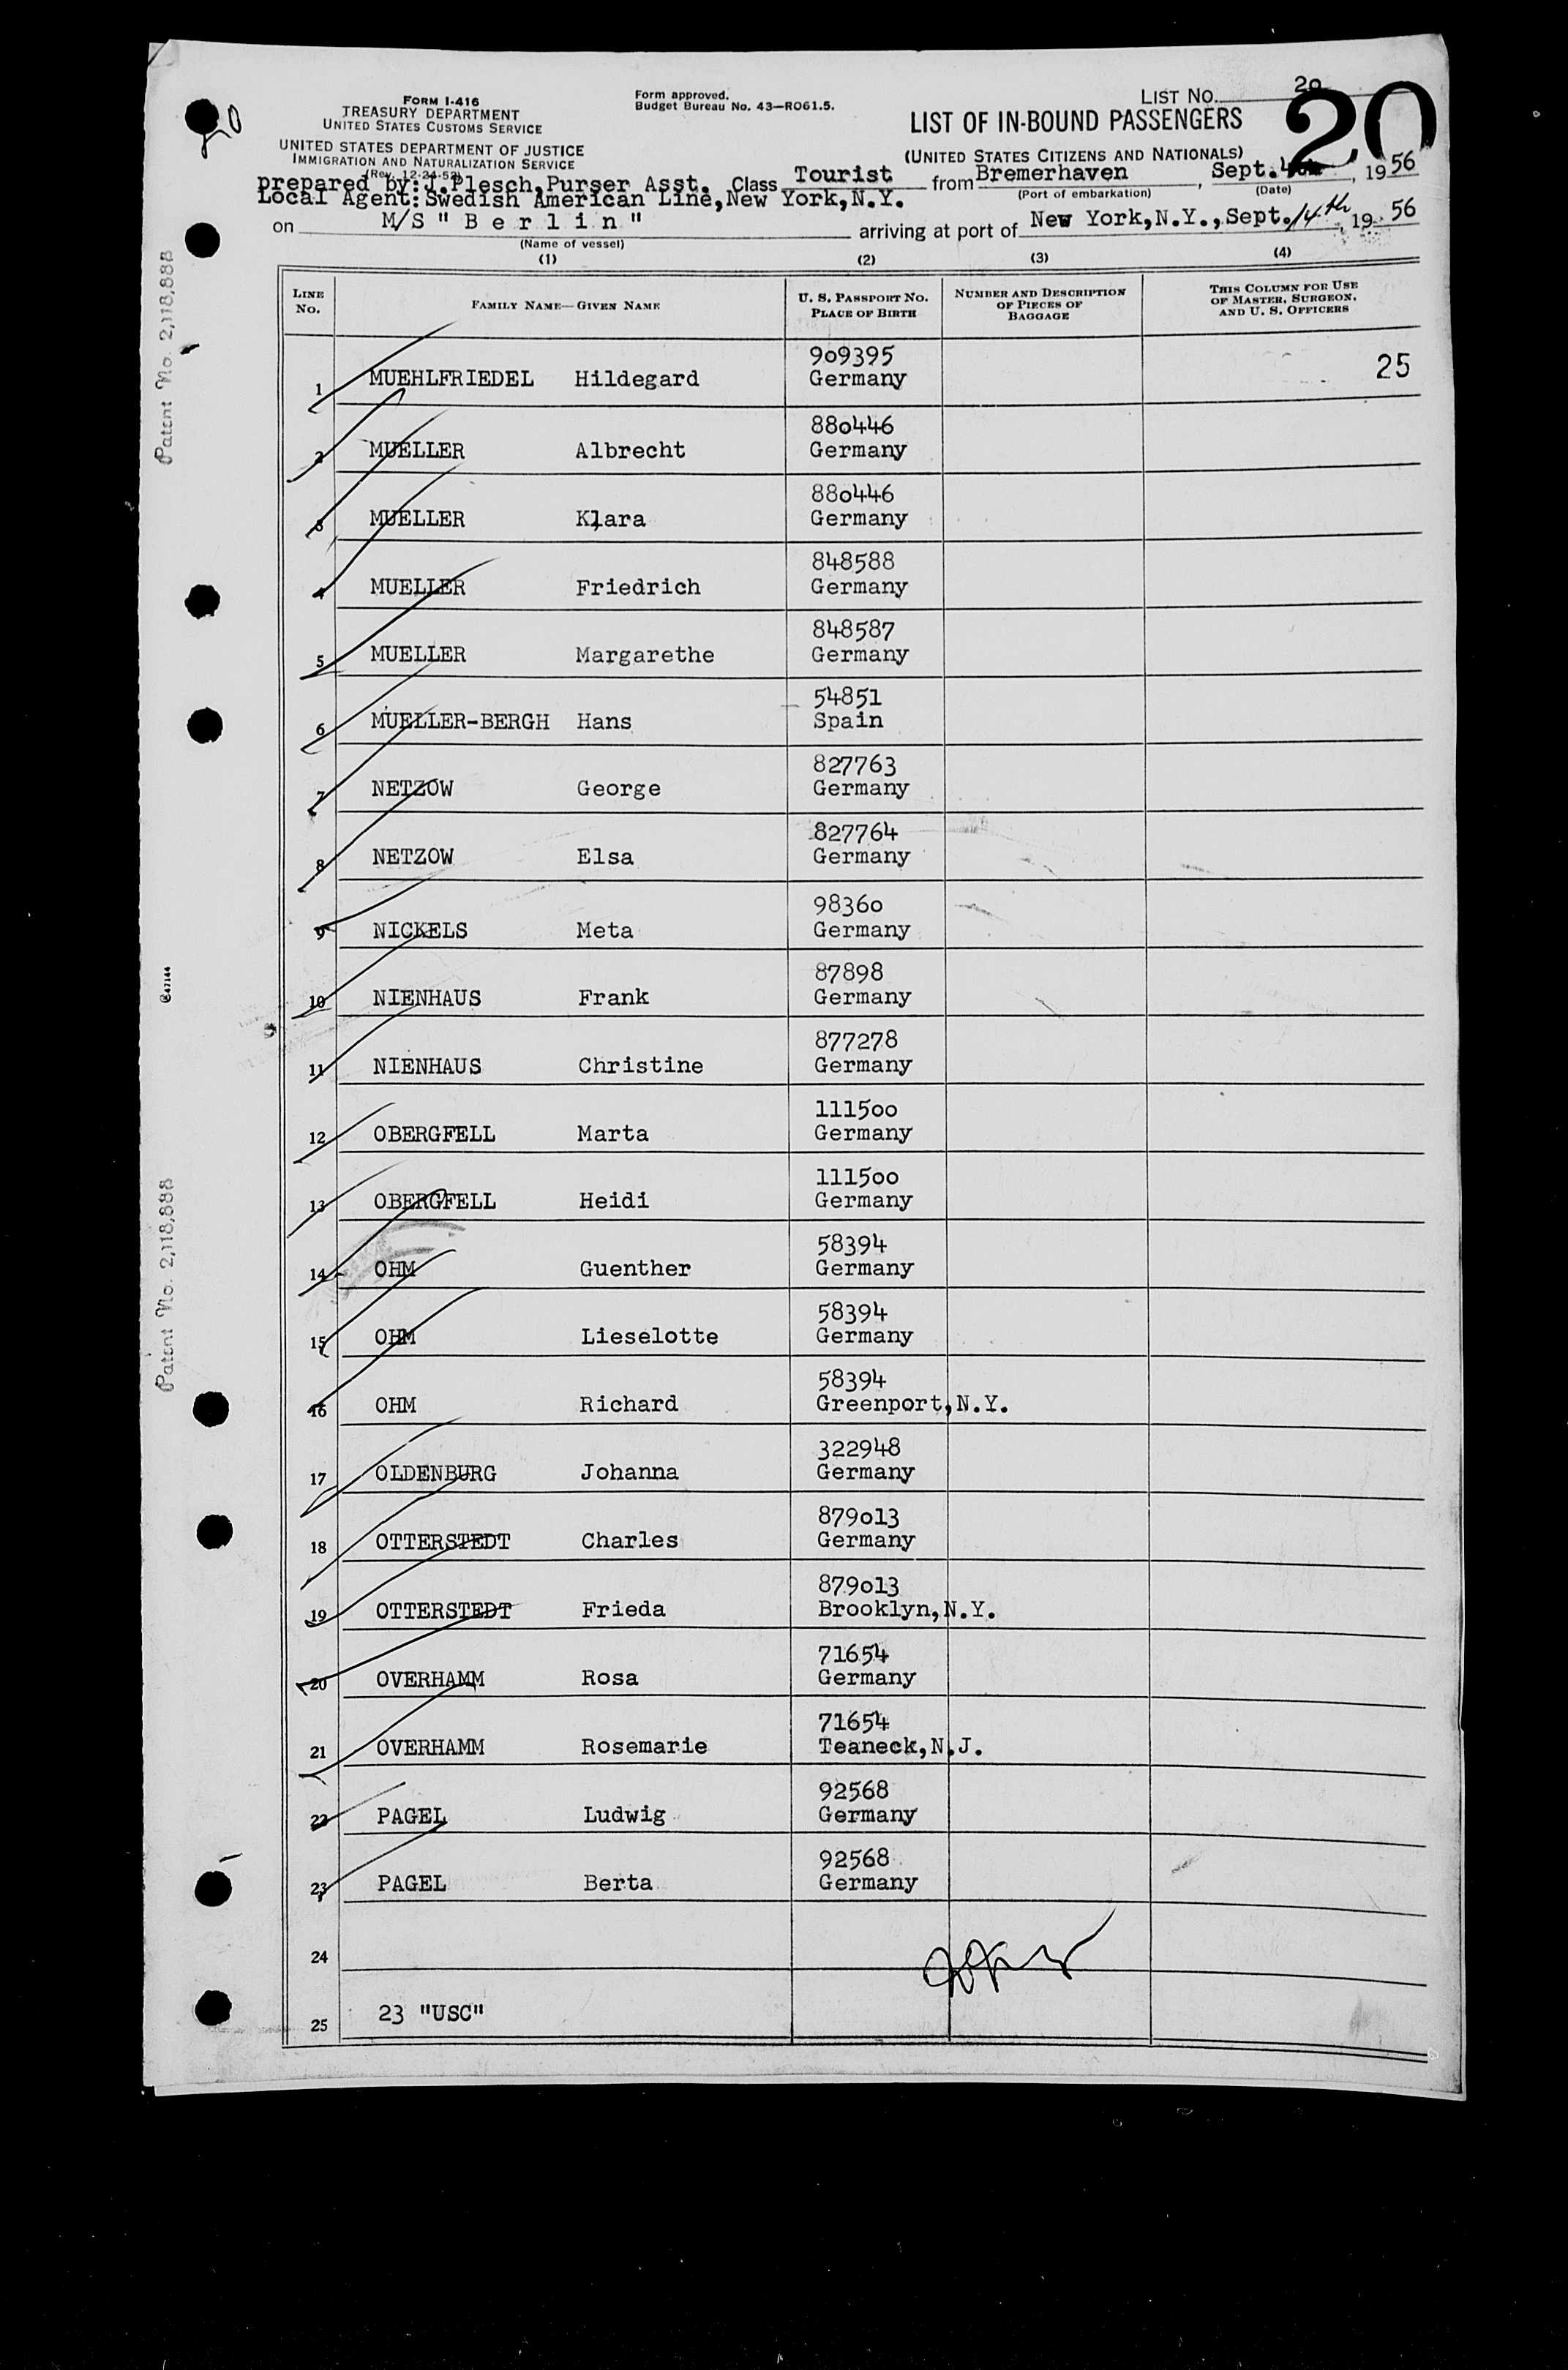 20
FORM I-416
TREASURY DEPARTMENT
UNITED STATES CUSTOMS SERVICE
UNITED STATES DEPARTMENT OF JUSTICE
IMMIGRATION AND NATURALIZATION SERVICE
(Rev. 12-24-52)
Form approved.
Budget Bureau No. 43—RO61.5.
LIST NO. 20
20
LIST OF IN-BOUND PASSENGERS
(UNITED STATES CITIZENS AND NATIONALS)
prepared by:J.Plesch,Purser Asst. Class Tourist from Bremerhaven, Sept. 4th, 1956
(Port of embarkation) (Date)
Local Agent:Swedish American Line,New York,N.Y.
on M/S "Berlin" arriving at port of New York,N.Y.,Sept.14th, 1956
(Name of vessel)
(1) (2) (3) (4)
LINE NO. FAMILY NAME—GIVEN NAME U. S. PASSPORT NO. PLACE OF BIRTH NUMBER AND DESCRIPTION OF PIECES OF BAGGAGE THIS COLUMN FOR USE OF MASTER, SURGEON, AND U. S. OFFICERS
1 MUEHLFRIEDEL Hildegard 909395 Germany 25
2 MUELLER Albrecht 880446 Germany
3 MUELLER Klara 880446 Germany
4 MUELLER Friedrich 848588 Germany
5 MUELLER Margarethe 848587 Germany
6 MUELLER-BERGH Hans 54851 Spain
7 NETZOW George 827763 Germany
8 NETZOW Elsa 827764 Germany
9 NICKELS Meta 98360 Germany
10 NIENHAUS Frank 87898 Germany
11 NIENHAUS Christine 877278 Germany
12 OBERGFELL Marta 111500 Germany
13 OBERGFELL Heidi 111500 Germany
14 OHM Guenther 58394 Germany
15 OHM Lieselotte 58394 Germany
16 OHM Richard 58394 Greenport,N.Y.
17 OLDENBURG Johanna 322948 Germany
18 OTTERSTEDT Charles 879013 Germany
19 OTTERSTEDT Frieda 879013 Brooklyn,N.Y.
20 OVERHAMM Rosa 71654 Germany
21 OVERHAMM Rosemarie 71654 Teaneck,N.J.
22 PAGEL Ludwig 92568 Germany
23 PAGEL Berta 92568 Germany
24
25 23 "USC"
Patent No. 2,118,888
©47144
Patent No. 2,118,888